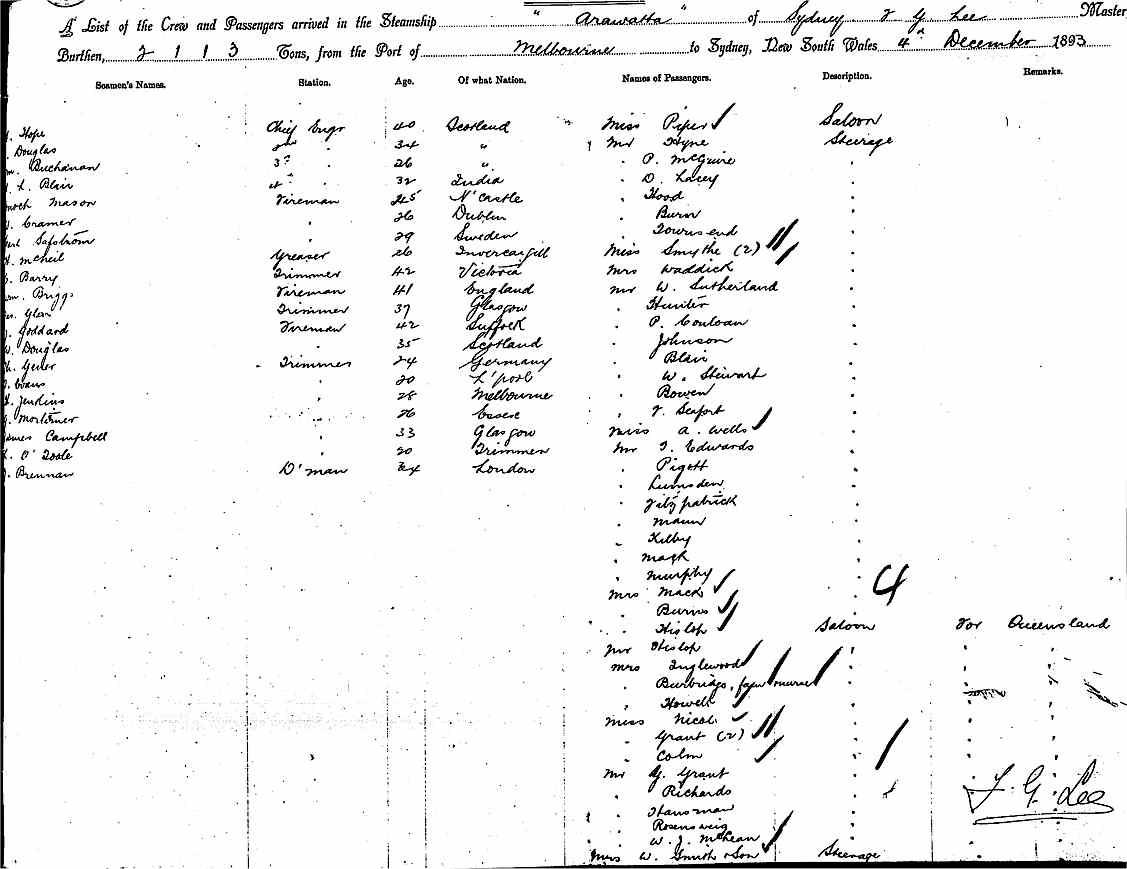 A List of the Crew and Passengers arrived in the Steamship " Arawatta " of Sydney F G Lee Master
Burthen, 2113 Tons, from the Port of Melbourne to Sydney, New South Wales 4th December 1893
Seamen's Names. Station. Age. Of what Nation. Names of Passengers. Description. Remarks.
Hope Chief Engr 40 Scotland Miss Piper Saloon
Douglas 2nd 34 " Mr Hyne Steerage
Buchanan 3rd 26 " P. McGuire
L. Blair 4th 32 India D. Lacey
Mason Fireman 45 N'Castle Hood
Cramer 26 Dublin Burn
Safstrom 29 Sweden Townsend
McNeil Greaser 26 Invercargill Miss Smythe (2)
Barry Trimmer 42 Victoria Mrs Waddick
Briggs Fireman 41 England Mr W. Sutherland
Trimmer 37 Glasgow Hunter
Goddard Fireman 42 Suffolk P. Conloan
Douglas 35 Scotland Johnson
Trimmer 24 Germany Blair
Evans 20 L'pool W. Stewart
Jenkins 28 Melbourne Bowen
Mortimer 26 Essex F. Seafort
James Campbell 33 Glasgow Miss A. Wells
O'Toole 20 Trimmer Mr T. Edwards
Brennan D'man London Pigott
Lumsden
Fitzpatrick
Mann
Kilby
Mack
Murphy
Mrs Mack
Burns
Hislop Saloon For Queensland
Mr Hislop
Mrs Inglewood
Burbridge,
Howell
Miss Nicol
Grant (2)
Colm
Mr G. Grant
Richards
Hansman
Rosensweig
W. J. McLean
Mrs W. Smith & Son Steerage
4
F. G. Lee